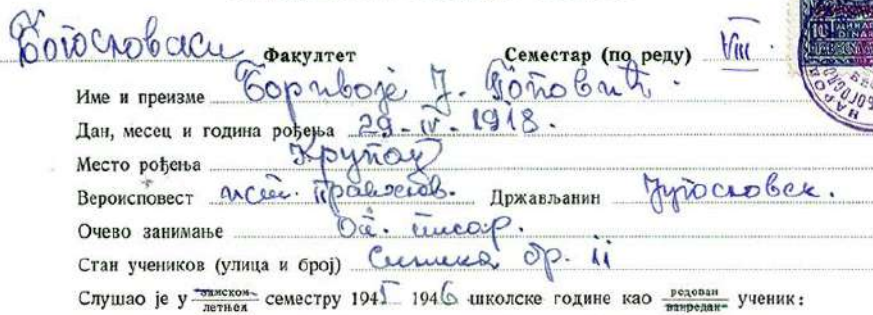 Богословски Факултет Семестар (по реду) VIII.
Име и презиме Боривоје Ј. Поповић.
Дан, месец и година рођења 29-IV-1918.
Место рођења Крупањ
Вероисповест ист. православ. Држављанин Југословен.
Очево занимање Оп. писар.
Стан учеников (улица и број) бр. 11
Слушао је у зимском летњем семестру 1945 1946 школске године као редован ванредан ученик: